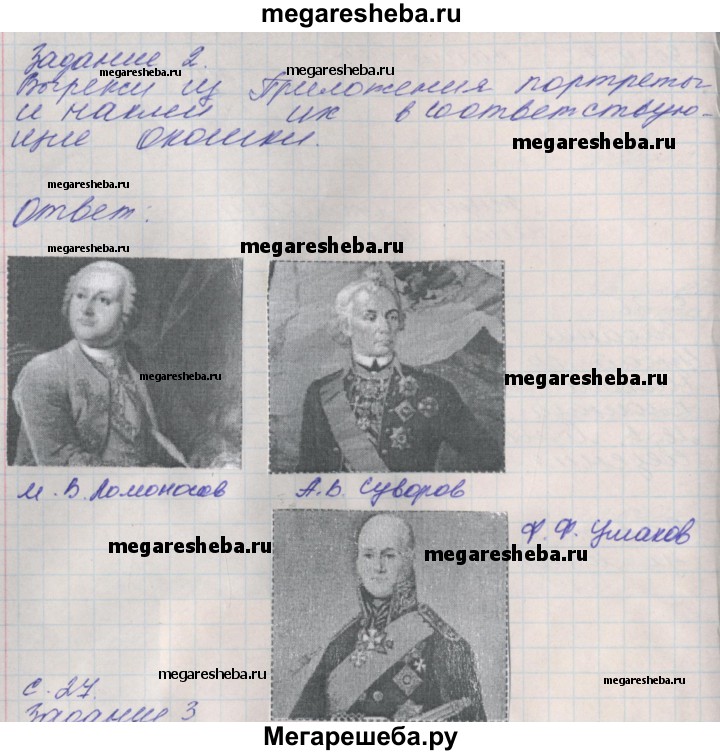 megaresheba.ru
Задание 2.
megaresheba.ru
megaresheba.ru
Вырежи из Приложения портреты
и наклей их в соответствую-
щие окошки.
megaresheba.ru
megaresheba.ru
Ответ:
megaresheba.ru
megaresheba.ru
megaresheba.ru
megaresheba.ru
М. В. Ломоносов
А. В. Суворов
Ф. Ф. Ушаков
megaresheba.ru
megaresheba.ru
megaresheba.ru
megaresheba.ru
с. 27.
Задание 3
Мегарешеба.ру